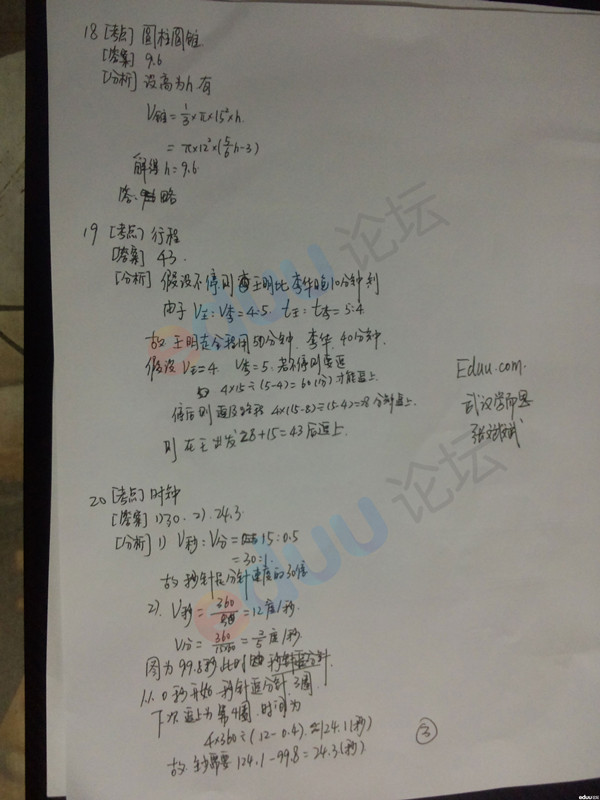 18 [考点] 圆柱圆锥
[答案] 9.6
[分析] 设高为h 有
V锥=1/3×π×15²×h
=π×12²×(5/6h-3)
解得 h=9.6
答. 略
19 [考点] 行程
[答案] 43.
[分析] 假设不停则王明比李华晚10分钟到
由于 V王:V李=4:5. t王:t李=5:4
故 王明走全程用50分钟. 李华 40分钟.
假设 V王=4 V李=5. 若不停则要追
4×15÷(5-4)=60(分)才能追上.
停后则 4×(15-8)÷(5-4)=28分钟追上.
则 在王出发 28+15=43 后追上.
Eduu.com.
武汉学而思
20 [考点] 时钟
[答案] 1)30. 2).24.3.
[分析] 1) V秒:V分=15:0.5
=30:1.
故 秒针是分针速度的30倍
2). V秒=360/30=12度/秒.
V分=360/15×60=2/5度/秒
因为99.8秒此时秒针追分针
从0秒开始 秒针追分针3圈.
下次追上为第4圈. 时间为
4×360÷(12-0.4)≈124.1(秒)
故 需要 124.1-99.8=24.3(秒).
③
eduu论坛
eduu论坛
eduu